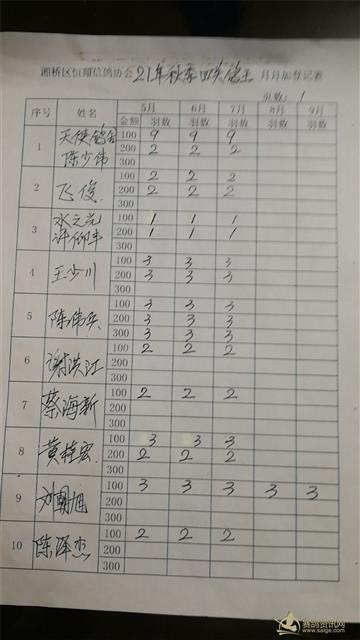 湘桥区恒翔信鸽协会 21年秋季四关鸽王 月月加登记表
页数: 1
序号 姓名 5月 6月 7月 8月 9月
金额 羽数 羽数 羽数 羽数 羽数
1 天使鸽舍 陈少伟 100 9 9 9
200 2 2 2
300
2 飞俊 100 2 2 2
200 2 2 2
300
3 许仰丰 100 1 1 1
200 1 1 1
300
4 王少川 100 3 3 3
200 3 3 3
300
5 陈伟兵 100 3 3 3
200 3 3 3
300 3 3 3
6 谢洪江 100 2 2 2
200
300
7 蔡海新 100 2 2 2
200
300
8 黄桂宏 100 3 3 3
200 2 2 2
300
9 刘朝旭 100 3 3 3 3 3
200
300
10 陈泽杰 100 2 2 2
200
300
赛鸽资讯网
www.saige.com